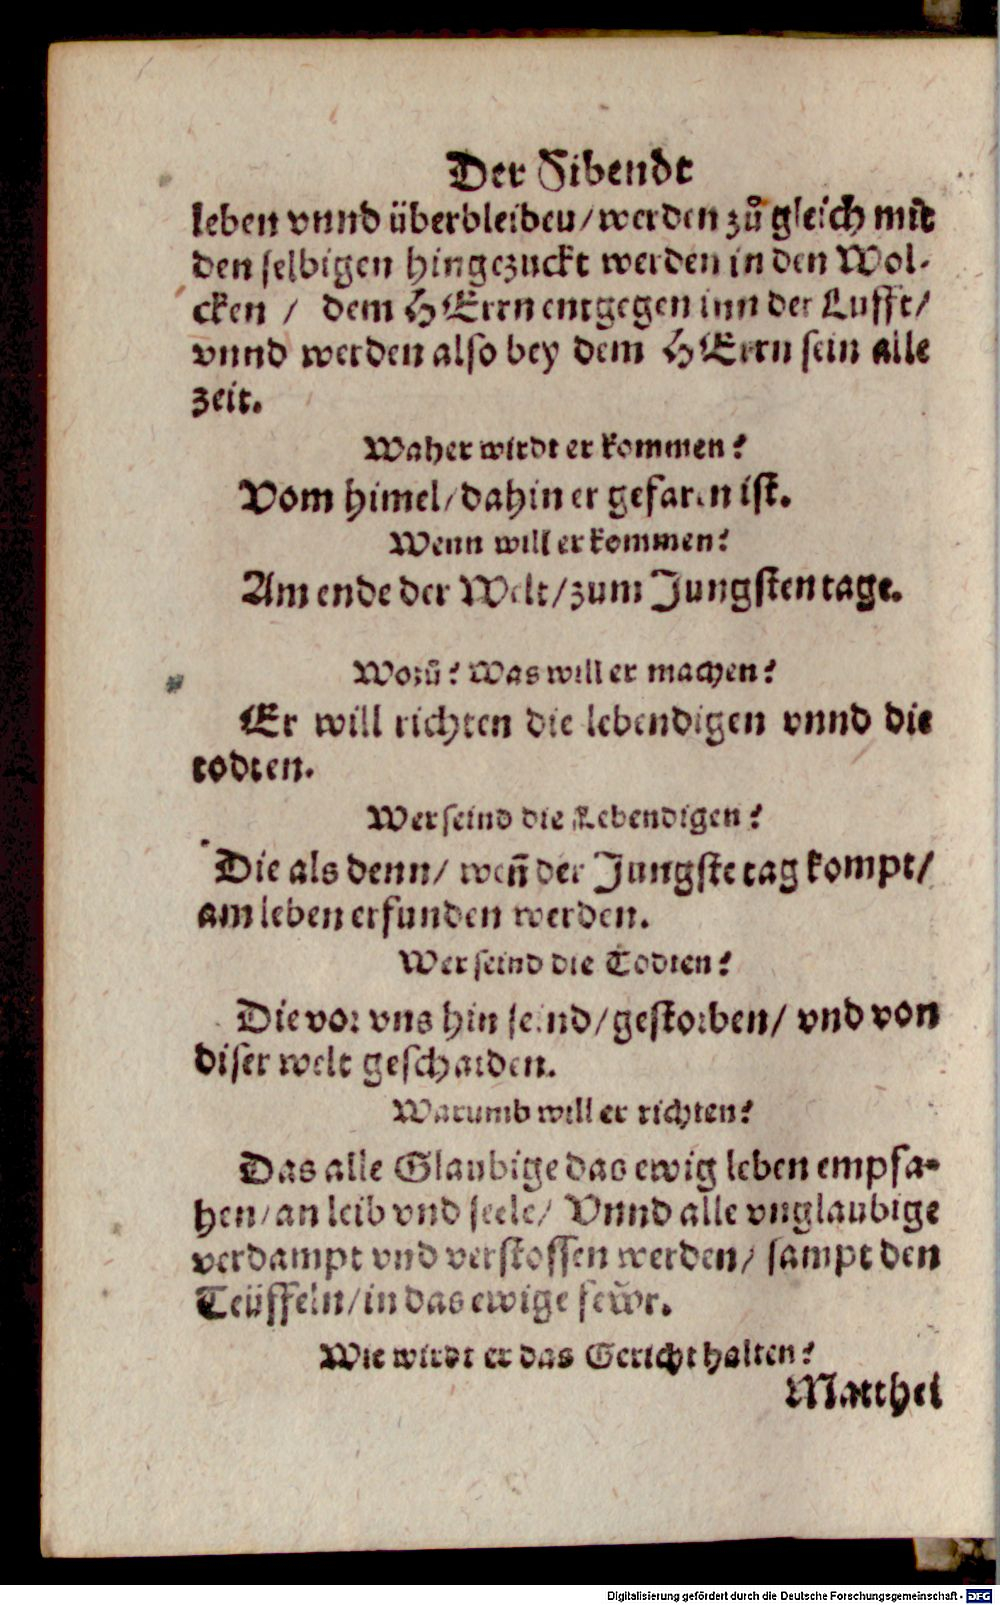 Der Sibendt
leben vnnd überbleiben/werden zů gleich mit
den selbigen hingezuckt werden in den Wol-
cken / dem HErrn entgegen inn der Lufft/
vnnd werden also bey dem HErrn sein alle
zeit.
Waher wirdt er kommen?
Vom himel/dahin er gefaren ist.
Wenn will er kommen?
Am ende der Welt/zum Jungsten tage.
Wozů? Was will er machen?
Er will richten die lebendigen vnnd die
todten.
Wer seind die Lebendigen?
Die als denn/ wen̄ der Jungste tag kompt/
am leben erfunden werden.
Wer seind die Todten?
Die vor vns hin seind/gestorben/ vnd von
diser welt geschaiden.
Warumb will er richten?
Das alle Glaubige das ewig leben empfa-
hen/an leib vnd seele/ Vnnd alle vnglaubige
verdampt vnd verstossen werden/ sampt den
Teüffeln/in das ewige fewr.
Wie wirdt er das Gericht halten?
Matthei
Digitalisierung gefördert durch die Deutsche Forschungsgemeinschaft - DFG